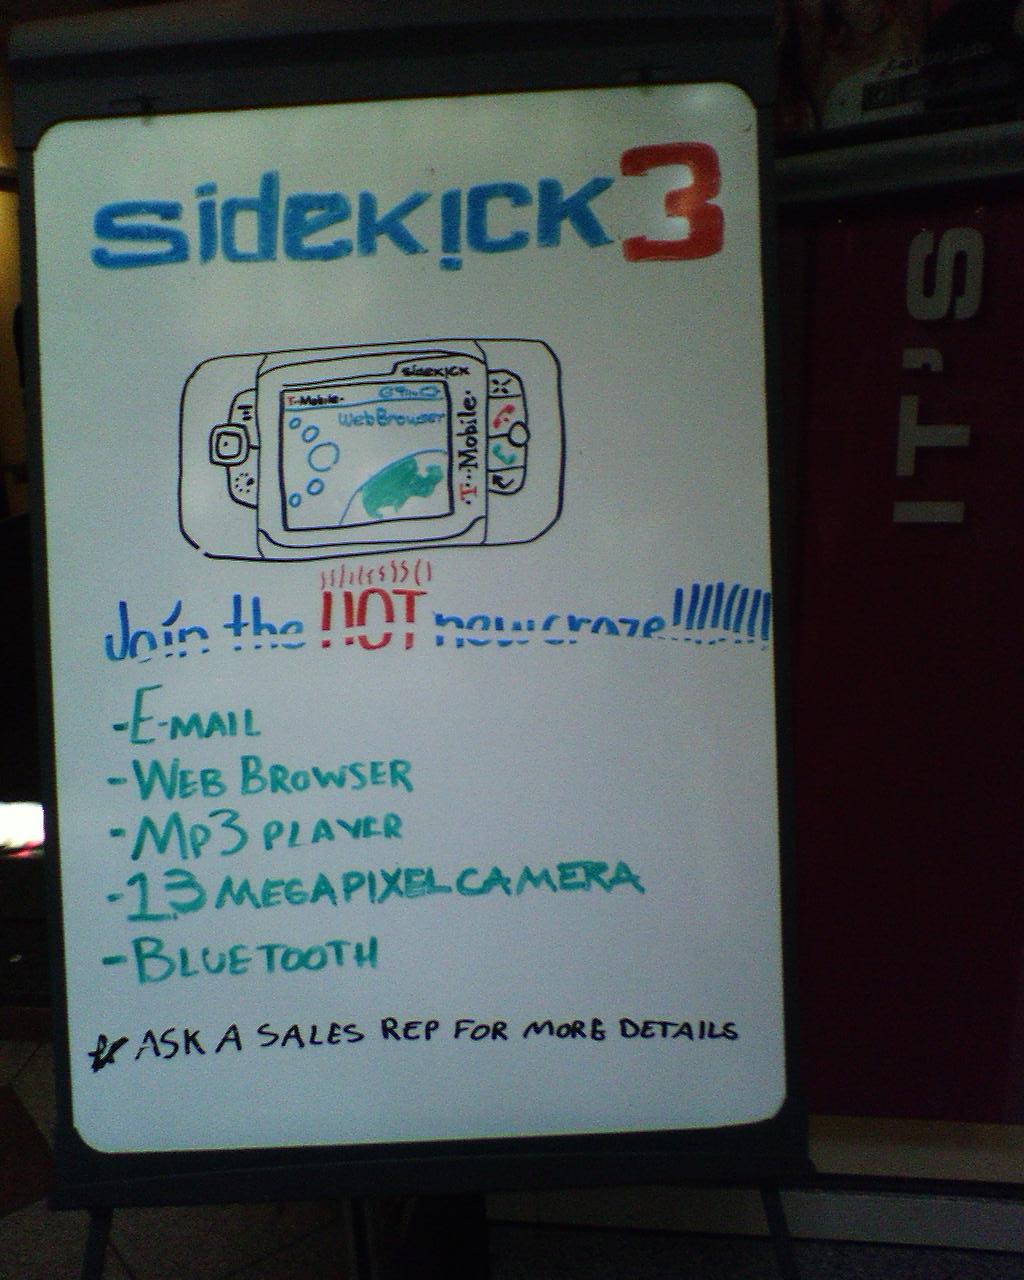 sidekick3
sidekick
T-Mobile
Web Browser
T-Mobile
Join the HOT new craze!!!!!!!!!
-E-MAIL
-WEB BROWSER
-Mp3 PLAYER
-1.3 MEGAPIXEL CAMERA
-BLUETOOTH
ASK A SALES REP FOR MORE DETAILS
IT'S